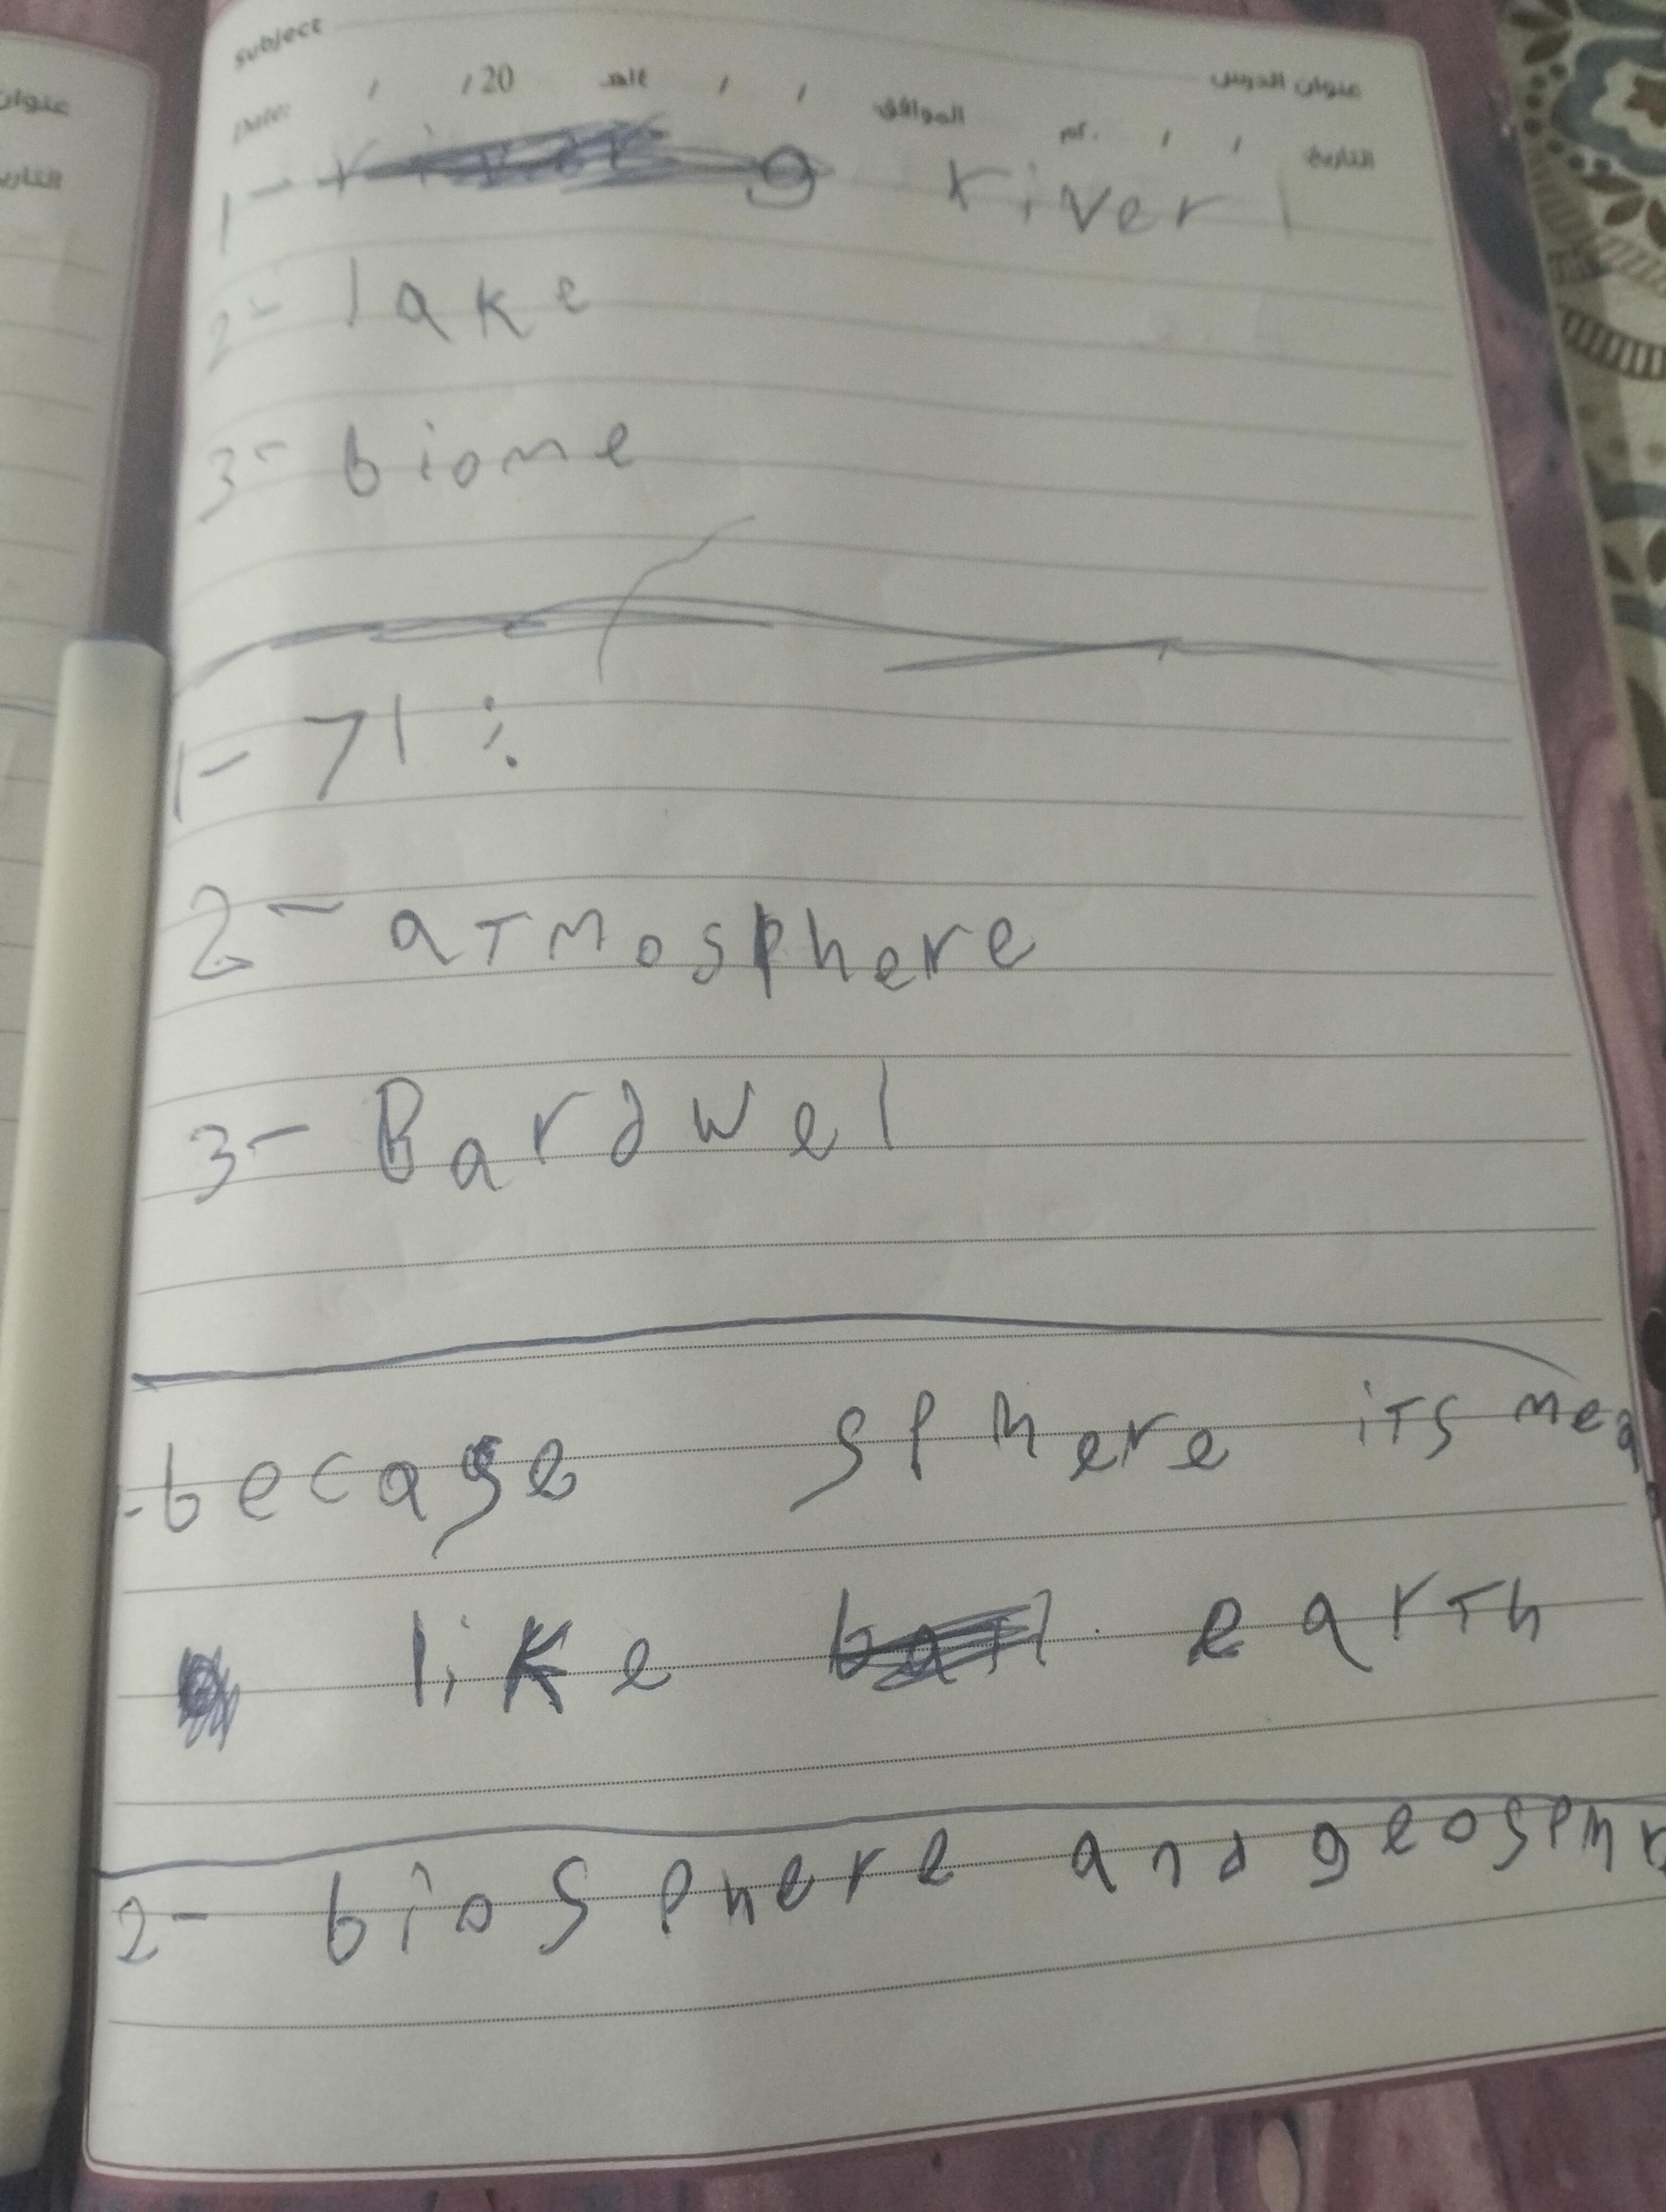 subject
عنوان الدرس
Date: / / 20 الموافق / / هـ التاريخ / / م.
1- river
2- lake
3- biome
1- 71 %
2- atmosphere
3- Bardwel
- becase sphere its mea
like earth
2- biosphere and geosphr
عنوان
التاريخ